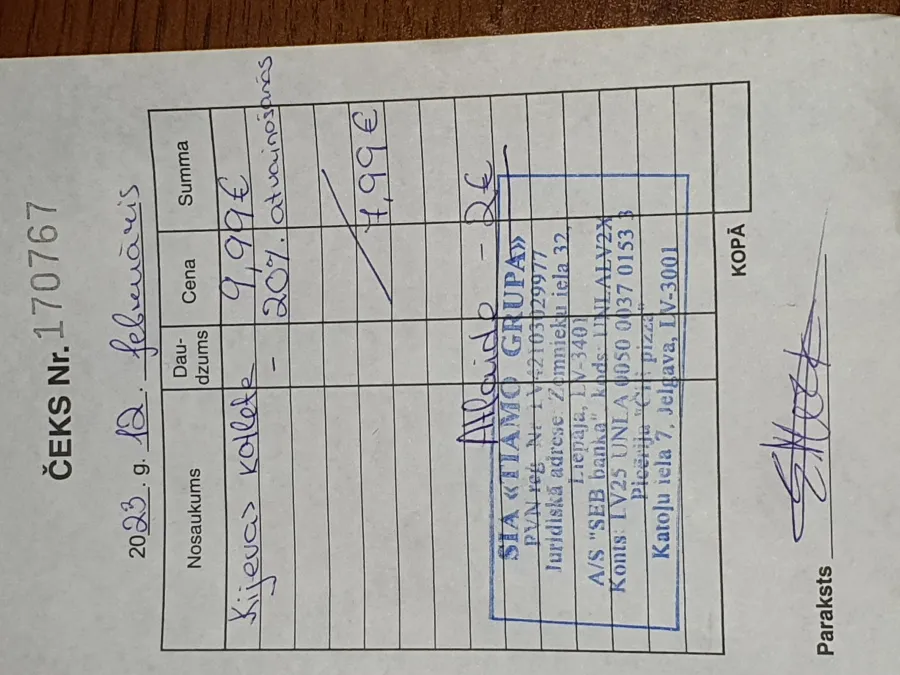 ČEKS Nr. 170767
2023. g. 12. februāris
Nosaukums Dau-dzums Cena Summa
Kijevas kotlete 9,99€
- 20% atvainošanās
7,99€
Atlaide - 2€
SIA «TIAMO GRUPA»
PVN reg. Nr. LV42103029977
Juridiskā adrese: Zemnieku iela 32,
Liepāja, LV-3401
A/S "SEB banka" kods: UNLALV2X
Konts: LV25 UNLA 0050 0037 0153 3
Picērija "Čili pizza"
Katoļu iela 7, Jelgava, LV-3001
KOPĀ
Paraksts